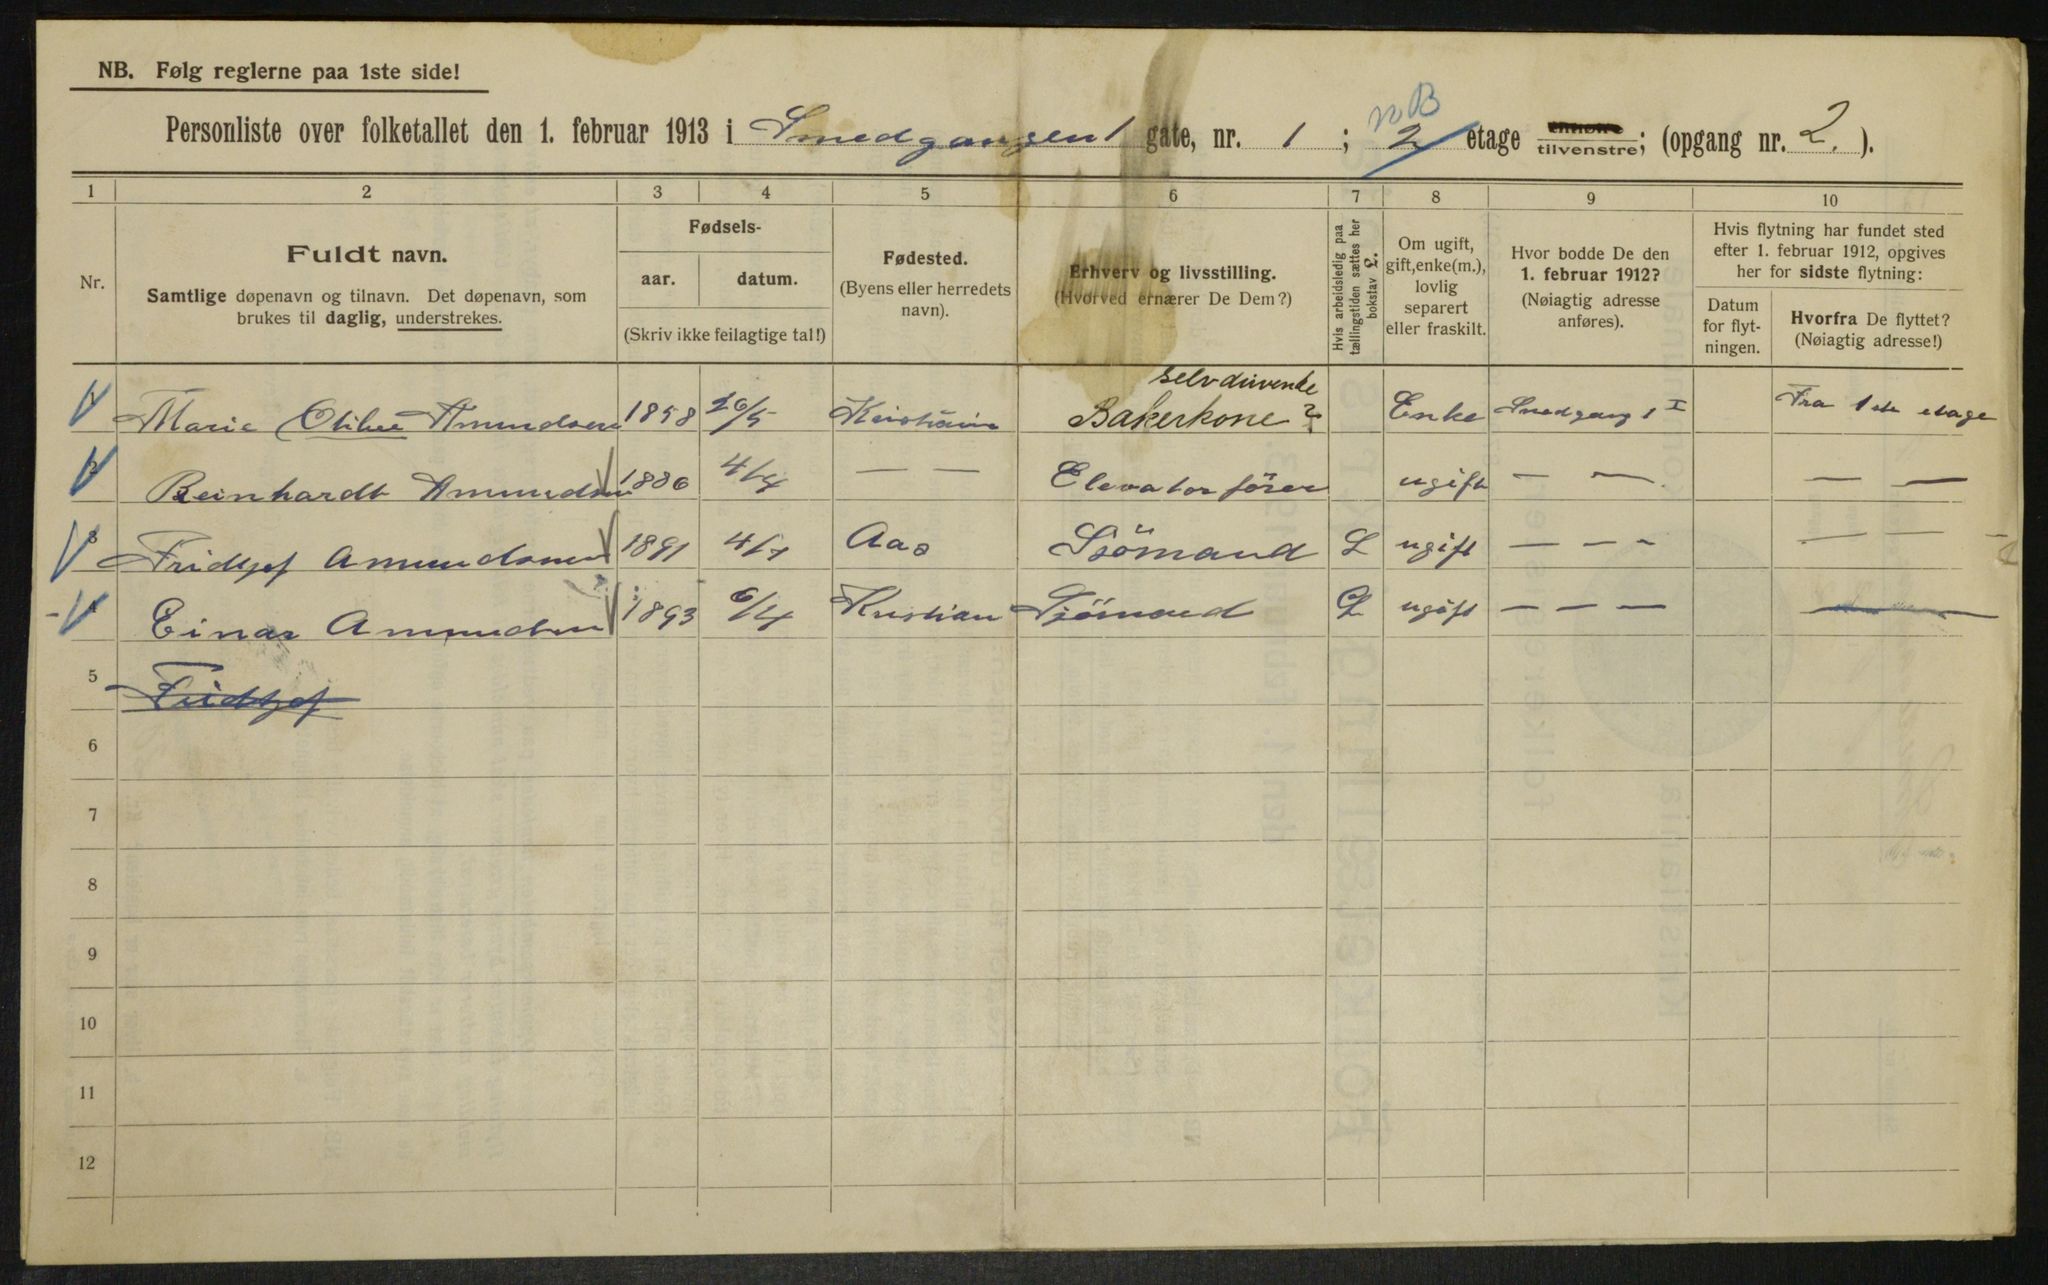 NB. Følg reglerne paa 1ste side!
NB
Personliste over folketallet den 1. februar 1913 i Smedgangen 1 gate, nr. 1 ; 2 etage tilvenstre; (opgang nr. 2. ).
1 2 3 4 5 6 7 8 9 10
Nr.
Fuldt navn.
Samtlige døpenavn og tilnavn. Det døpenavn, som
brukes til daglig, understrekes.
Fødsels-
aar. datum.
(Skriv ikke feilagtige tal!)
Fødested.
(Byens eller herredets
navn).
Erhverv og livsstilling.
(Hvorved ernærer De Dem?)
Hvis arbeidsledig paa
tællingstiden sættes her
bokstav L.
Om ugift,
gift, enke(m.),
lovlig
separert
eller fraskilt.
Hvor bodde De den
1. februar 1912?
(Nøiagtig adresse
anføres).
Hvis flytning har fundet sted
efter 1. februar 1912, opgives
her for sidste flytning:
Datum
for flyt-
ningen.
Hvorfra De flyttet?
(Nøiagtig adresse!)
selvdrivende
1 Marie Amundsen 1858 26/5 Bakerkone ? Enke Smedgang 1 I Fra 1ste etage
2 Reinhardt Amundsen 1886 4/4 — — Elevatorfører ugift — — — —
3 Fridtjof Amundsen 1891 4/7 Aas Sjömand L ugift — — — — — —
4 Einar Amundsen 1893 6/4 Kristian Sjömand L ugift — — — —
5 Fridtjof
6
7
8
9
10
11
12